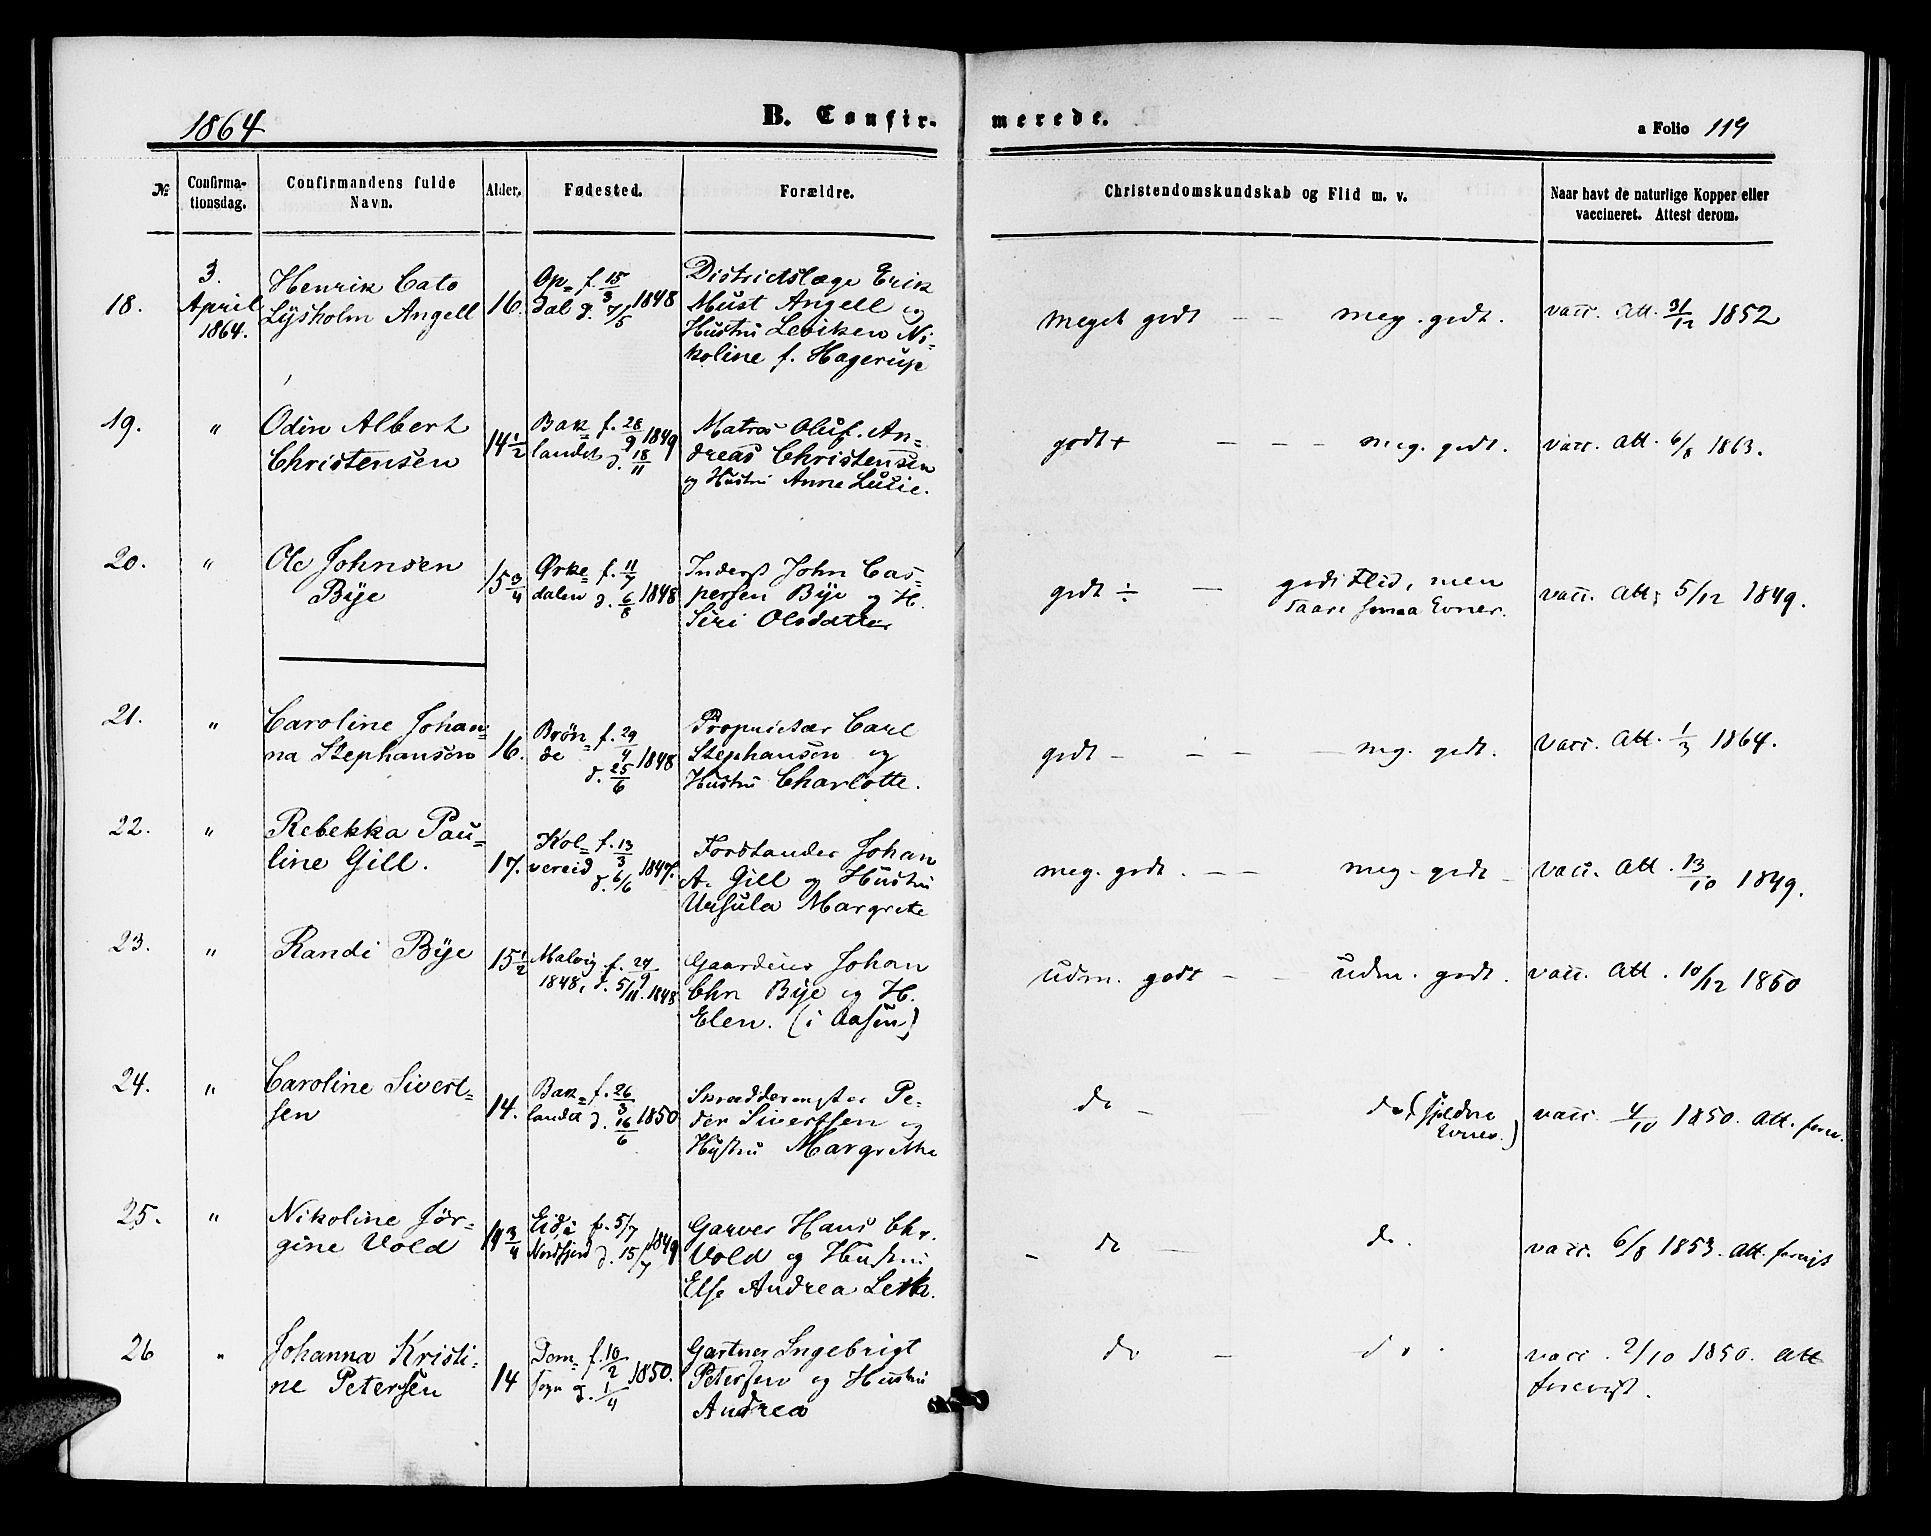 1864
B. Confirmerede.
a Folio 119
№
Confirmationsdag.
Confirmandens fulde Navn.
Alder.
Fødested.
Forældre.
Christendomskundskab og Flid m. v.
Naar havt de naturlige Kopper eller vaccineret. Attest derom.
18.
3. April 1864.
Henrik Cato
Lysholm Angell
16.
Op= f. 15/3 1848
dal d. 7/5
Districtslæge Erik
Must Angell og
Hustru Leviken Ni=
koline f. Hagerup
meget godt – – meg. godt.
vacc. att. 31/12 1852
19.
"
Odin Albert
Christensen
14 1/2
Bak= f. 28/9 1849
landet d. 18/11
Matros Oluf An=
dreas Christensen
og Hustru Anne Lucie.
godt + – – – meg. godt.
vacc. att. 6/8 1863.
20.
"
Ole Johnsen
Bye
15 3/4
Ørke= f. 11/7 1848
dalen d. 6/8
Inderst John Cas=
persen Bye og H.
Siri Olsdatter
godt ÷ – god Flid, men
saare smaa Evner.
vacc. att. 5/12 1849.
21.
"
Caroline Johan=
na Stephansen
16.
Brøn= f. 29/4 1848
de d. 25/6
Proprietær Carl
Stephansen og
Hustru Charlotte.
godt – – – – meg. godt.
Vacc. att. 1/3 1864.
22.
"
Rebekka Pau=
line Gill.
17.
Kol= f. 13/3 1847.
vereid d. 6/6
Forstander Johan
A. Gill og Hustru
Ursula Margrete
meg. godt. – – meg. godt –
vacc. att. 13/10 1849.
23.
"
Randi Bye
15 1/2
Malvig f. 24/9
1848, d. 5/11. 1848
Gaardbr Johan
Chr Bye og H.
Elen. (i Aasen)
udm. godt – – udm. godt.
vacc. att. 10/12 1850
24.
"
Caroline Sivert=
sen
14.
Bak= f. 26/3 1850
landet d. 16/6
Skræddermester Pe=
der Sivertsen og
Hustru Margrethe
do – do (sjeldne
Evner.)
vacc. 4/10 1850. att. forev.
25.
"
Nikoline Jør=
gine Vold
14 3/4
Eid i f. 5/7 1849
Nordfjord d. 15/7
Garver Hans Chr.
Vold og Hustru
Else Andrea Leth.
– do – do.
vacc. 6/8 1853. att. forevist
26
"
Johanna Kristi=
ne Petersen
14
Dom= f. 10/2 1850.
sogn d. 1/4
Gartner Ingebrigt
Petersen og Hustru
Andrea
do – do.
vacc. 2/10 1850. att
forevist.